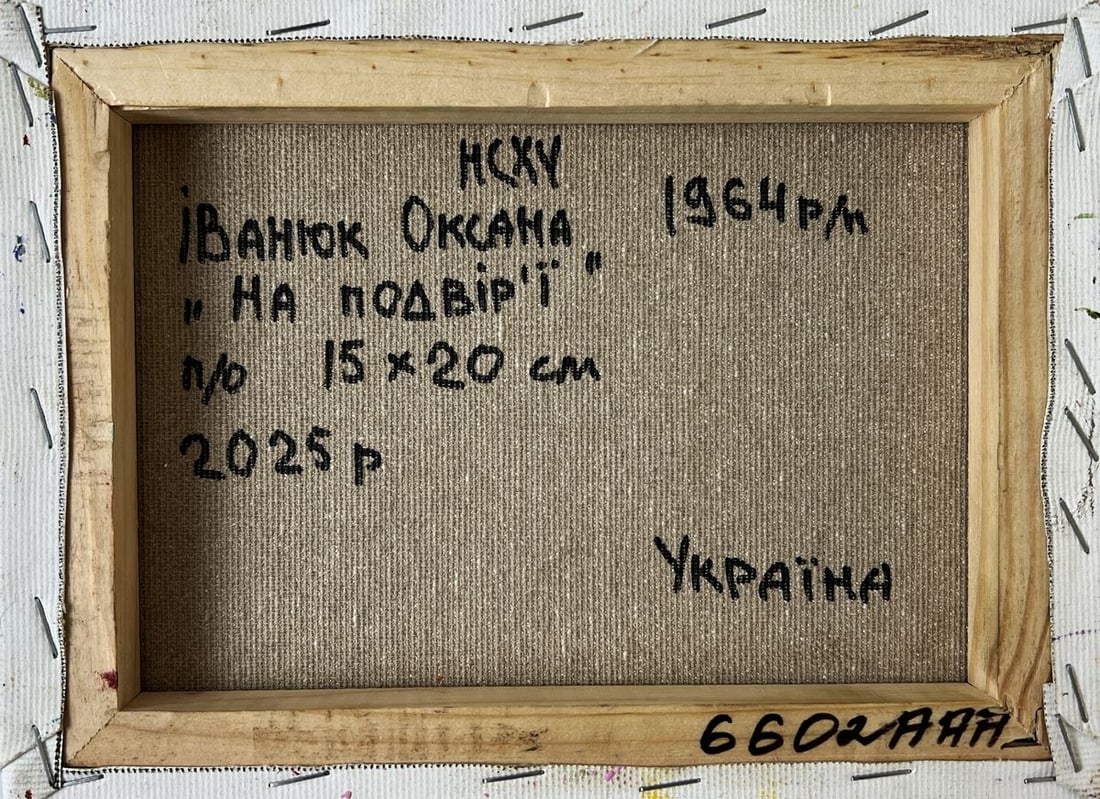 НСХУ
Іванюк Оксана 1964 р/н
„ На подвір'ї "
п/о 15 x 20 см
2025 р
Україна
6602ААА